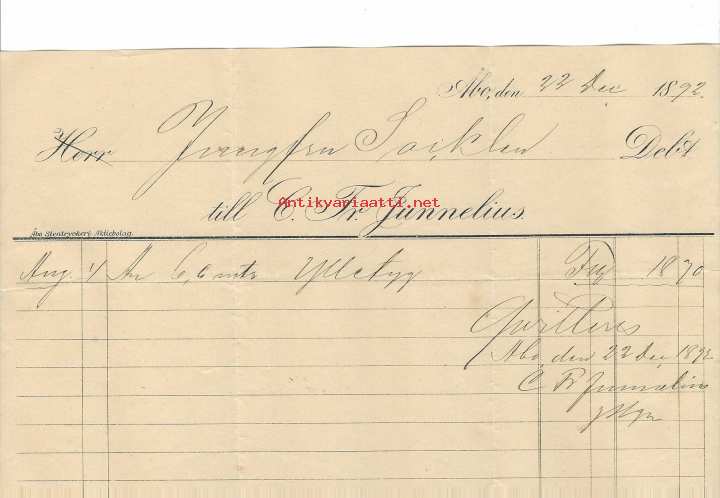 Åbo, den 22 Dec 1892.
Herr Jungfru Debet
Antikvariaatti.net
till C. Fr. Junnelius.
Åbo Stentryckeri Aktiebolag.
Aug. 4 An 6,6 mtr Ylletyg Fmk 18 70
Qvitteras
Åbo den 22 Dec 1892
C Fr Junnelius